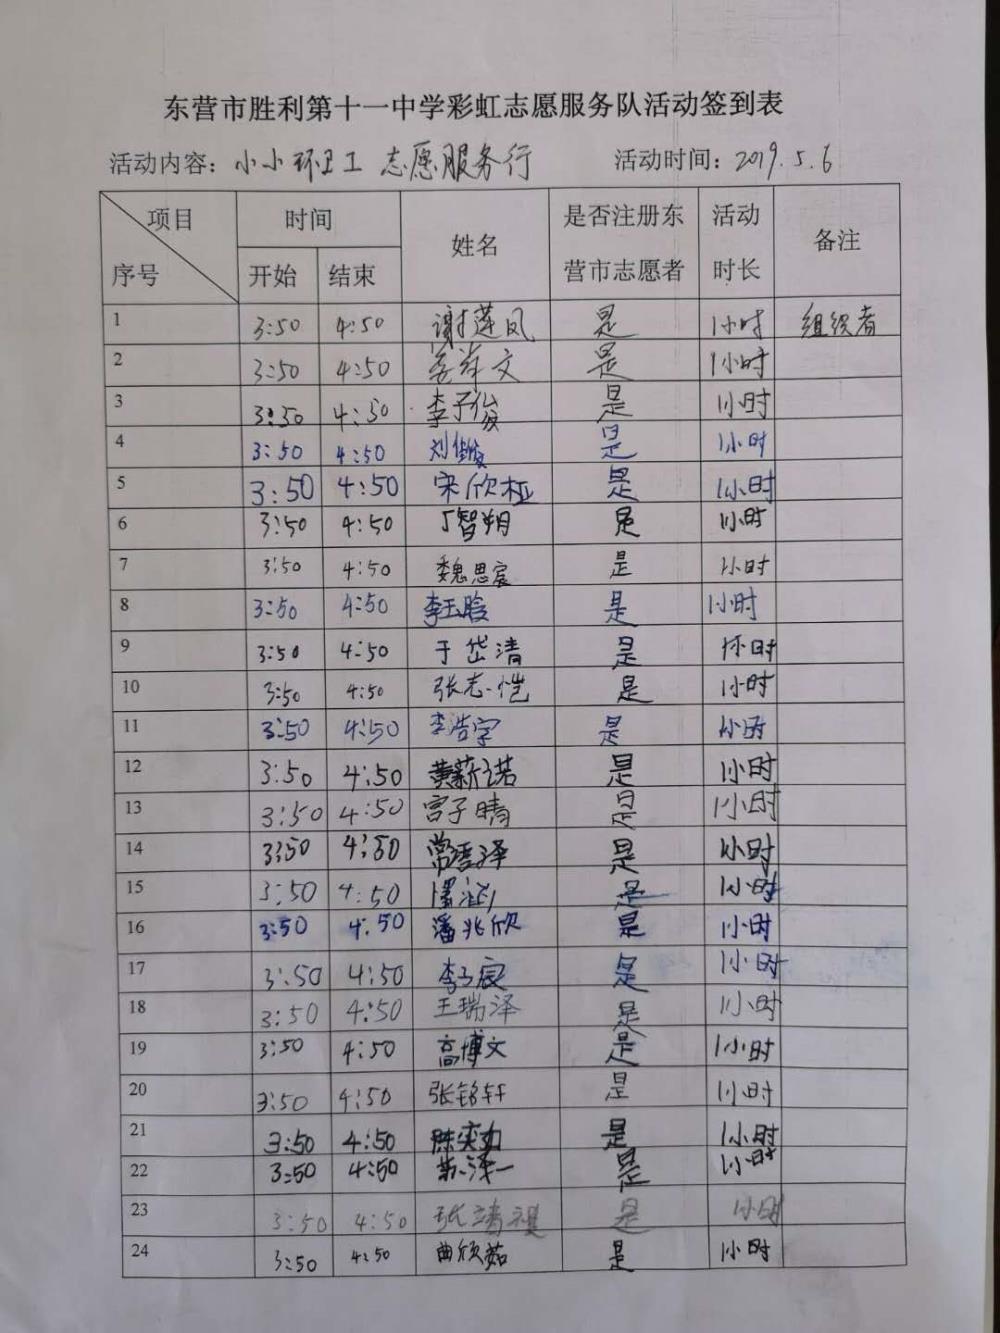 东营市胜利第十一中学彩虹志愿服务队活动签到表
活动内容: 小小环卫工 志愿服务行 活动时间: 2019.5.6
项目 时间 姓名 是否注册东营市志愿者 活动时长 备注
序号 开始 结束
1 3:50 4:50 谢莲凤 是 1小时 组织者
2 3:50 4:50 是 1小时
3 3:50 4:50 李子俊 是 1小时
4 3:50 4:50 刘俊 是 1小时
5 3:50 4:50 宋欣桓 是 1小时
6 3:50 4:50 丁智朔 是 1小时
7 3:50 4:50 魏思宸 是 1小时
8 3:50 4:50 李玉晗 是 1小时
9 3:50 4:50 于岱清 是 1小时
10 3:50 4:50 张志恺 是 1小时
11 3:50 4:50 李浩宇 是 1小时
12 3:50 4:50 黄薪诺 是 1小时
13 3:50 4:50 宫子晴 是 1小时
14 3:50 4:50 是 1小时
15 3:50 4:50 是 1小时
16 3:50 4:50 潘兆欣 是 1小时
17 3:50 4:50 李子宸 是 1小时
18 3:50 4:50 王瑞泽 是 1小时
19 3:50 4:50 高博文 是 1小时
20 3:50 4:50 张铭轩 是 1小时
21 3:50 4:50 是 1小时
22 3:50 4:50 是 1小时
23 3:50 4:50 张靖祺 是 1小时
24 3:50 4:50 曲欣茹 是 1小时